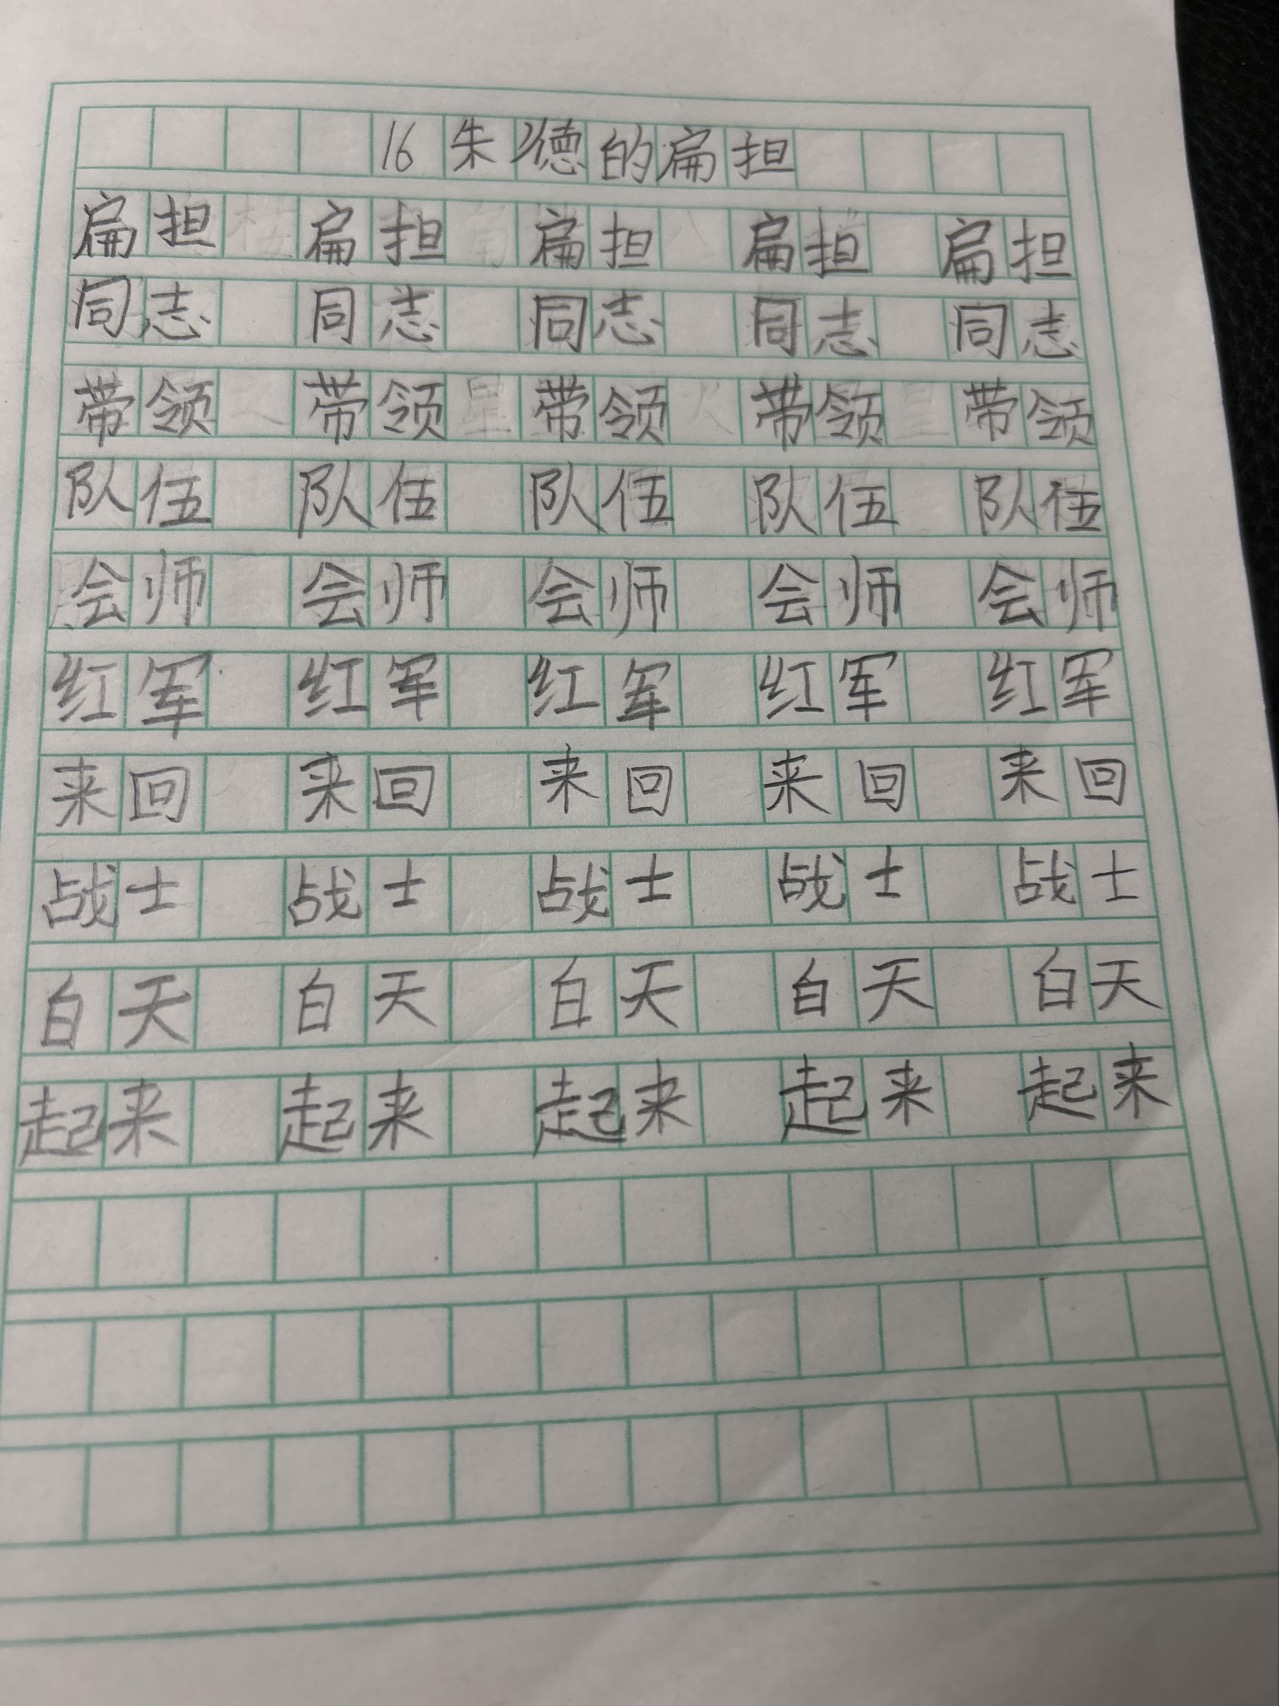 16 朱德的扁担
扁担 扁担 扁担 扁担 扁担
同志 同志 同志 同志 同志
带领 带领 带领 带领 带领
队伍 队伍 队伍 队伍 队伍
会师 会师 会师 会师 会师
红军 红军 红军 红军 红军
来回 来回 来回 来回 来回
战士 战士 战士 战士 战士
白天 白天 白天 白天 白天
起来 起来 起来 起来 起来